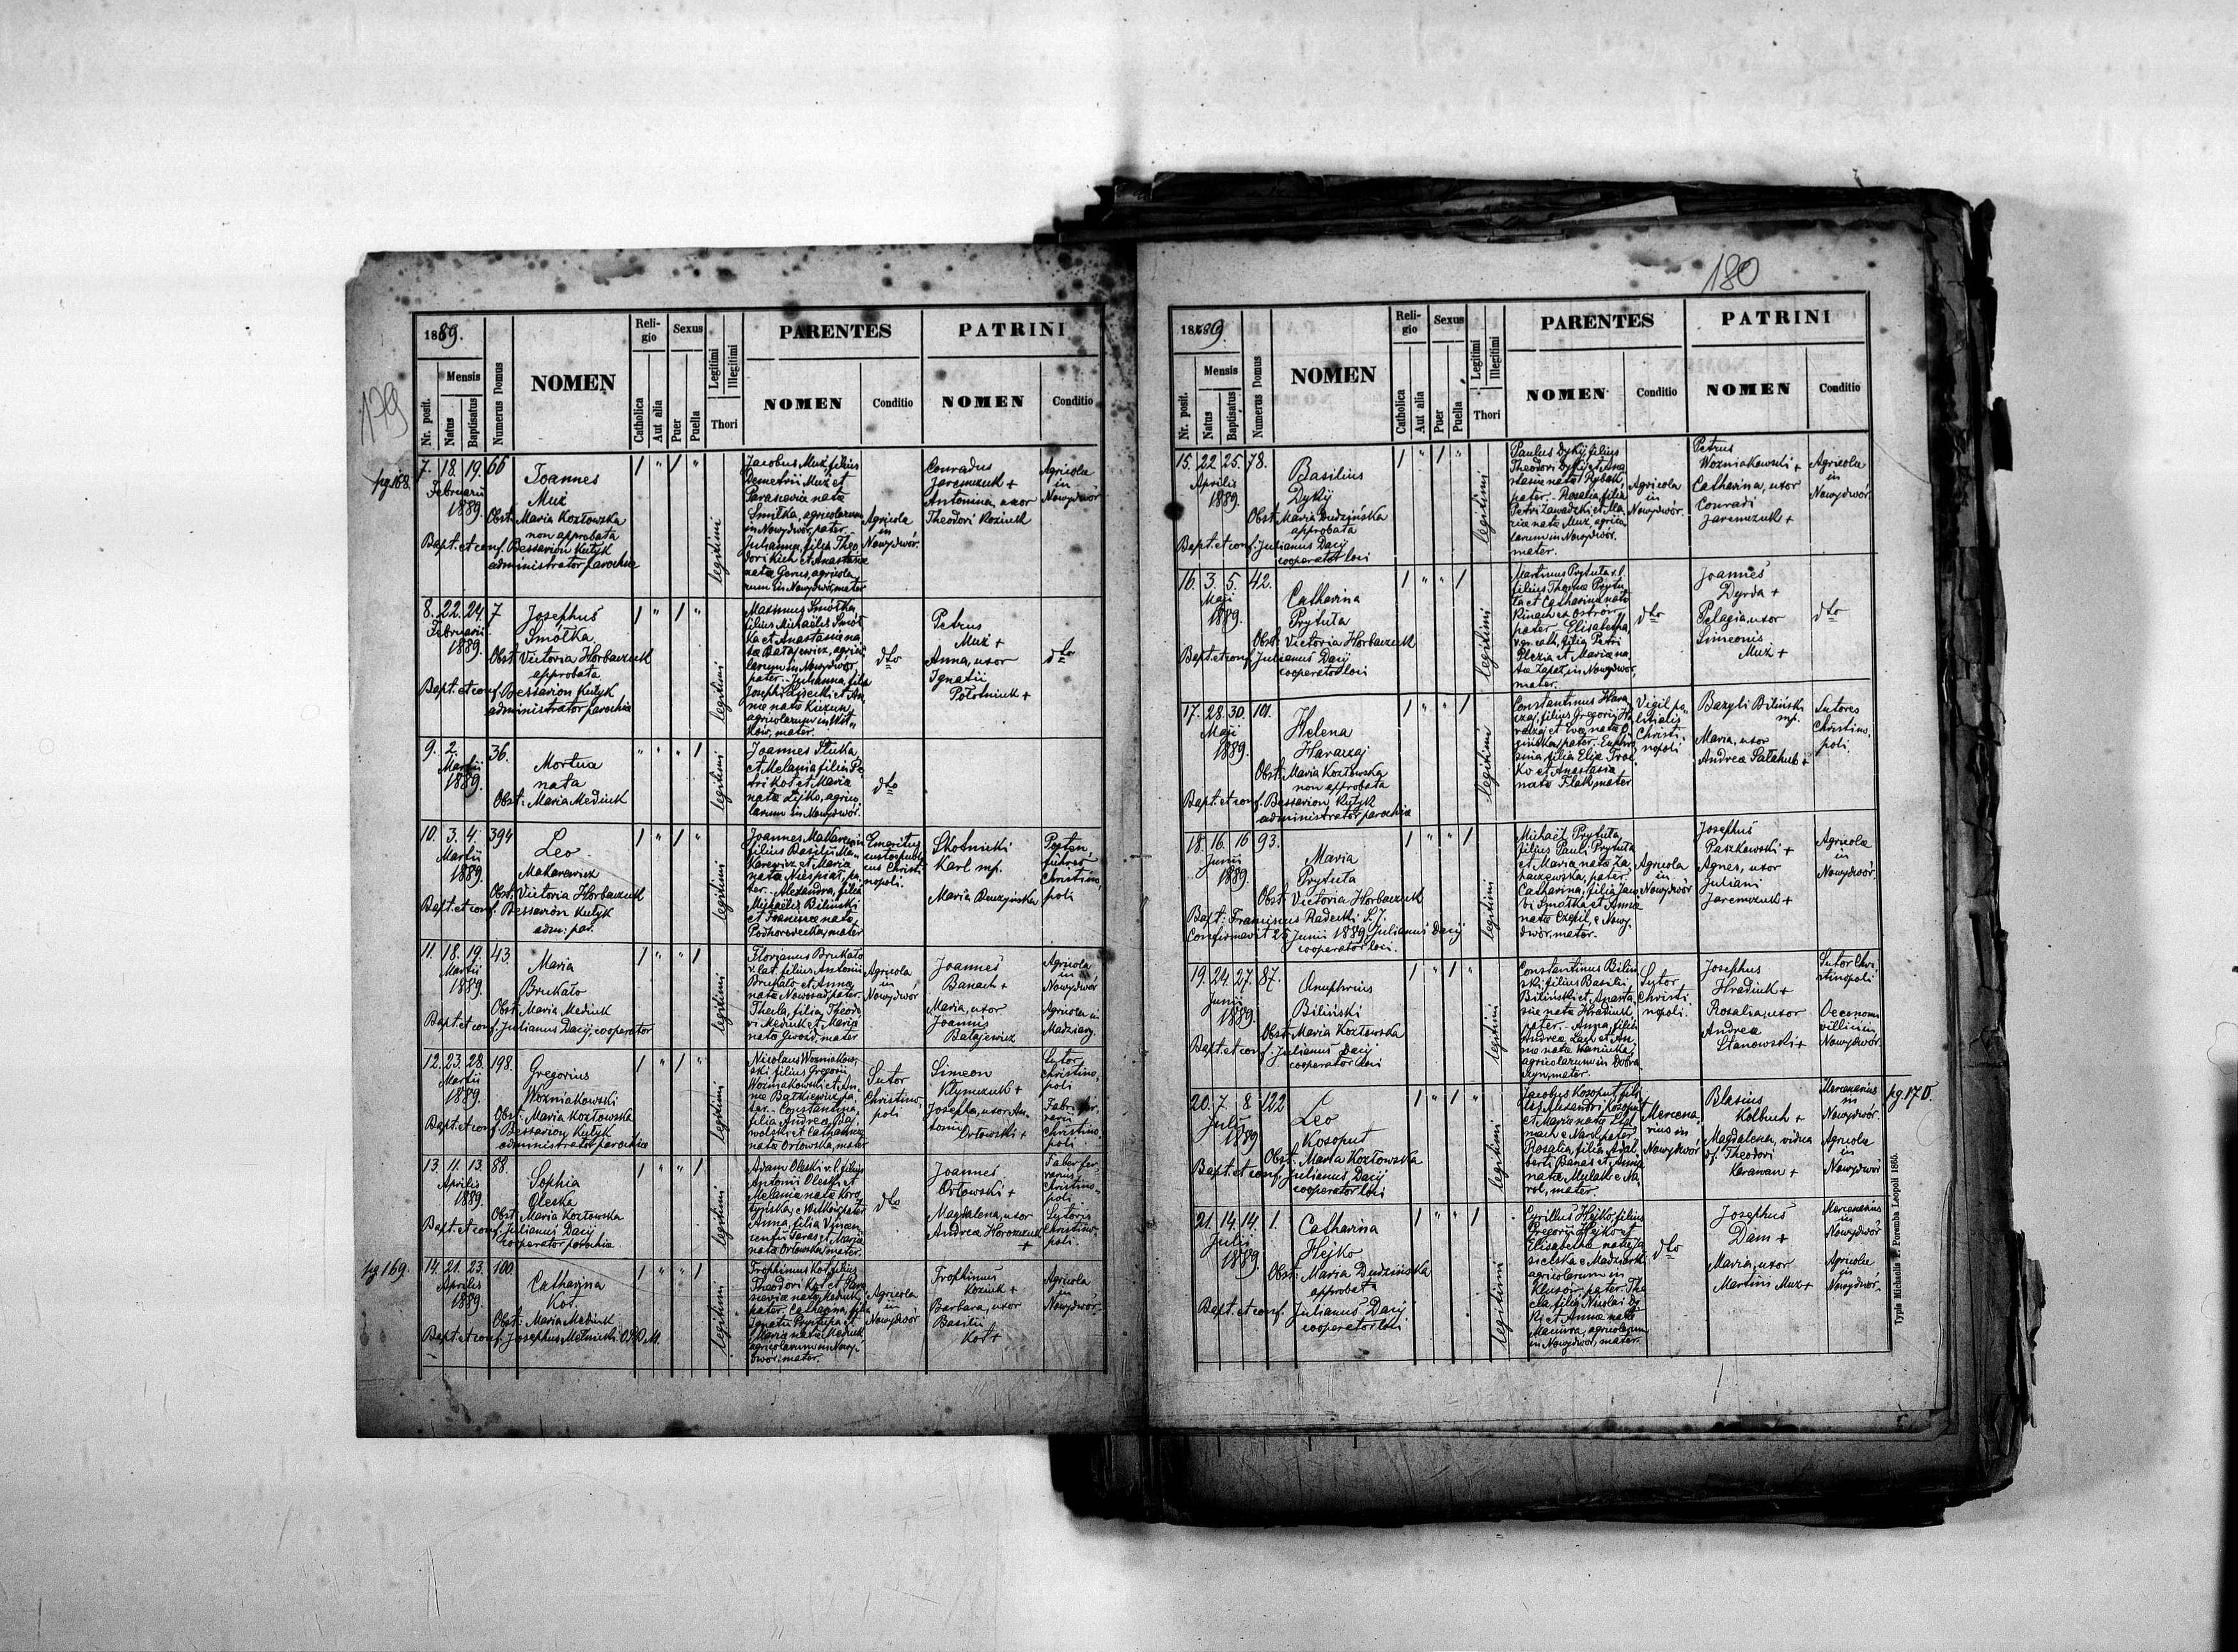 179
1889.
Mensis
Nr. posit.
Natus
Baptisatus
Numerus Domus
NOMEN
Reli-
gio
Catholica
Aut alia
Sexus
Puer
Puella
Legitimi
Illegitimi
Thori
PARENTES
NOMEN
Conditio
PATRINI
NOMEN
Conditio
pg 168.
7. 18. 19. 66
Februarii
1889.
Joannes
Muz
Obst. Maria Kozłowska
non approbata
Bapt. et conf. Bessarion Kutyk
administrator parochiae
legitimi
Jacobus Muz, filius
Demetrii Muz et
Parascevia nata
Smitka, agricolarum
in Nowydwór, pater.
Julianna, filia Theo-
dori Kich et Anastasiae
natae Gerus, agricola
rum in Nowydwór, mater
Agricola
in
Nowydwór.
Conradus
Jaremczuk +
Antonina, uxor
Theodori Koziuk
Agricola
in
Nowydwór
8. 22. 24. 7
Februarii
1889.
Josephus
Smółka
Obst. Victoria Horbaczuk
approbata
Bapt. et conf. Bessarion Kutyk
administrator parochiae
legitimi
Maximus Smółka
filius Michaelis Smół
ka et Anastasia na
ta Batajewicz, agrico
larum in Nowydwór
pater. Julianna, filia
mater.
dto
Petrus
Muz +
Anna, uxor
Ignatii
Połotniuk +
dto
9. 2. 36.
Martii
1889.
Mortua
nata
Obst. Maria Mediuk
legitimi
Joannes Stuka
et Melania filia Pe
tri Kot et Maria
nata Lejko, agrico
larum in Nowydwór.
dto
10. 3. 4. 394
Martii
1889.
Leo
Makarewicz
Obst. Victoria Horbaczuk
Bapt. et conf. Bessarion Kutyk
adm. par.
legitimi
Joannes Makarewicz
filius Basilii Ma-
karewicz et Maria
nata Niespiał, pa
ter. Alexandra, filia
Michaelis Biliński
et Franciscae nata
Podhorodecka, mater
Emeritus
Christi
nopoli.
Skotnicki
Karl mp.
Maria
Christino,
poli
11. 18. 19. 43.
Martii
1889.
Maria
Brukało
Obst. Maria Mediuk
Bapt. et conf. Julianus Dacij, cooperator
legitimi
Florianus Brukało
r. lat. filius Antonii
Brukało et Anna
nata Nowosad, pater.
Thecla, filia Theodo
ri Mediuk et Maria
nata Gwozd, mater
Agricola
in
Nowydwór
Joannes
Banach +
Maria, uxor
Joannis
Batajewicz
Agricola
in
Nowydwór
Agricola in
Madziarg.
12. 23. 28. 198.
Martii
1889.
Gregorius
Wozniakowski
Obst. Maria Kozłowska
Bapt. et conf. Bessarion Kutyk
administrator parochiae
legitimi
Nicolaus Wozniakow,
ski filius Gregorii
Wozniakowski et An-
nae Batkiewicz, pa,
ter. Constantina,
filia Andreae
et Catharinae
nata Orłowska, mater
Sutor
Christino,
poli
Simeon
Klymczuk +
Josepha, uxor An.
tonii
Orłowski +
Sutor
Christino,
poli
Christino,
poli
13. 11. 13. 88.
Aprilis
1889.
Sophia
Oleska
Obst. Maria Kozłowska
Bapt. et conf. Julianus Dacij
cooperator parochiae
legitimi
Adam Oleski r. l. filius
Antonii Oleski et
Melania nata Koro,
Anna, filia Vincen
centii Taras et Maria
nata Orłowska, mater.
dto
Joannes
Orłowski +
Magdalena, uxor
Andreae Horoszczuk
+
Faber fer,
rarius
Christino,
poli
Sutoris
Christino,
poli.
pg 169.
14. 21. 23. 100.
Aprilis
1889.
Catharina
Kot.
Obst. Maria Mediuk
Bapt. et conf. Josephus Melnicki O.S.B.M.
legitimi
Trophimus Kot, filius
Theodori Kot et Para
scevia nata Mediuk,
pater. Catharina, filia
Ignatii Prystupa et
Maria nata Mediuk
agricolarum in Nowy-
dwór, mater.
Agricola
in
Nowydwór
Trophimus
Koziuk +
Barbara, uxor
Basilii
Kot +
Agricola
in
Nowydwór
180
1889.
Mensis
Nr. posit.
Natus
Baptisatus
Numerus Domus
NOMEN
Reli-
gio
Catholica
Aut alia
Sexus
Puer
Puella
Legitimi
Illegitimi
Thori
PARENTES
NOMEN
Conditio
PATRINI
NOMEN
Conditio
15. 22 25. 78.
Aprilis
1889.
Basilius
Dykij
Obst. Maria Dudzińska
approbata
Bapt. et conf. Julianus Dacij
cooperator loci
legitimi
Paulus Dykij, filius
Theodori Dykij et Ana
stasiae nata Rybak,
pater. Rosalia, filia
Petri Zawadzki et Ma
ria nata Muz, agrico
larum in Nowydwór.
mater.
Agricola
in
Nowydwór.
Petrus
Wozniakowski +
Catharina, uxor
Conradi
Jaremczuk +
Agricola
in
Nowydwór
16. 3. 5. 42.
Maji
1889.
Catharina
Prytuła
Obst. Victoria Horbaczuk
Bapt. et conf. Julianus Dacij
cooperator loci
legitimi
Martinus Prytuła r. l.
filius Thomae Prytu
ła et Catharina nata
Kinach e Ostrów
pater Elisabetha,
r. gr. cath. filia Petri
Plezia et Maria na
ta Zając, in Nowydwór,
mater.
dto
Joannes
Dyrda +
Pelagia, uxor
Simeonis
Muz +
dto
17. 28. 30. 101.
Maji
1889.
Helena
Harazaj
Obst. Maria Kozłowska
non approbata
Bapt. et conf. Bessarion Kutyk
administrator parochiae
legitimi
Constantinus Hara
zaj, filius Gregorii Ha
razaj et Eva nata
pater. Euphro
sina filia Eliae
et Anastasia
nata Flak, mater
Vigil po
litialis
Christi
nopoli
Bazyli Biliński
mp.
Maria, uxor
Andreae Sałahub +
Sutores
Christino,
poli.
18. 16. 16 93.
Junii
1889.
Maria
Prytuła
Obst. Victoria Horbaczuk
Bapt. Franciscus Radecki S. J.
Confirmavit 25 Junii 1889. Julianus Dacij
cooperator loci.
legitimi
Michaël Prytuła,
filius Pauli Prytuła
et Maria nata Za,
pater.
Catharina, filia Jaco
bi Smółka et Anna
nata Czepil, e Nowy-
dwór, mater.
Agricola
in
Nowydwór
Josephus
Paszkowski +
Agnes, uxor
Juliani
Jaremczuk +
Agricola
in
Nowydwór.
19. 24. 27. 87.
Junii
1889.
Onuphrius
Biliński
Obst. Maria Kozłowska
Bapt. et conf. Julianus Dacij
cooperator loci
legitimi
Constantinus Biliń
ski, filius Basilii
Biliński et Anasta,
sia nata Hradiuk,
pater. Anna, filia
Andreae Lach et An
na nata Kaniuka,
agricolarum in Dobra
czyn, mater.
Sutor
Christi.
nopoli.
Josephus
Hradiuk +
Rosalia, uxor
Andreae
Stanowski +
Sutor Chri
stinopoli
Oeconomi
villici in
Nowydwór.
20. 7. 8 122
Julii
1889
Leo
Kosoput
Obst. Maria Kozłowska
Bapt. et conf. Julianus Dacij
cooperator loci
legitimi
Jacobus Kosoput, fili
us Alexandri Kosoput
et Maria nata
pater
Rosalia, filia Adal,
berti Banas et Anna
nata Mulak e Na
rol, mater.
Mercena,
rius in
Nowydwór
Blasius
Kolbuch +
Magdalena, vidua
Theodori
Karawan +
Mercenarius
in
Nowydwór.
Agricola
in
Nowydwór
pg. 170.
21. 14. 14. 1.
Julii
1889.
Catharina
Hejko
Obst. Maria Dudzińska
approbata
Bapt. et conf. Julianus Dacij
cooperator loci
legitimi
Cyrillus Hejko, filius
Gregorii Hejko et
Elisabetha nata Ja
sielska e Madziarki
agricolarum in
Klusów, pater. The
cla, filia Nicolai Dy
ki et Anna nata
Maciura, agricolarum
in Nowydwór, mater.
dto
Josephus
Dam +
Maria, uxor
Martini Muz +
Mercenarius
in
Nowydwór
Agricola
in
Nowydwór.
Typis Michaelis F. Poremba Leopoli 1865.